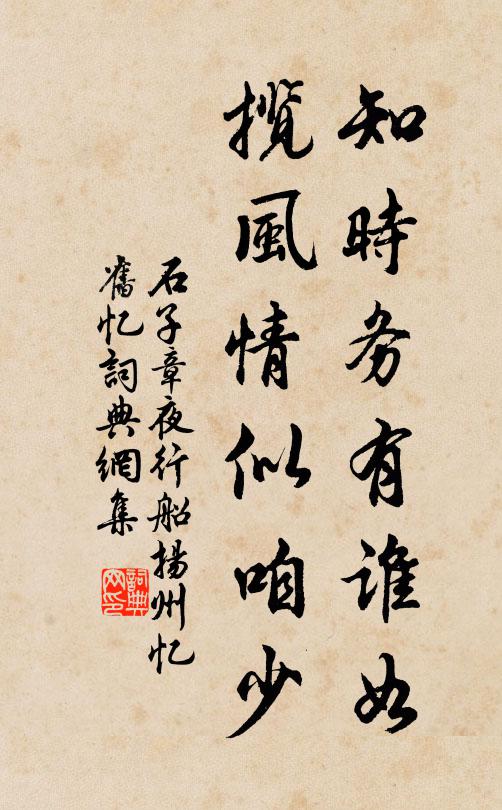 知時务有谁如
揽風情似咱少
石子章夜行船揚州忆
舊忆詞典網集
詞典网印